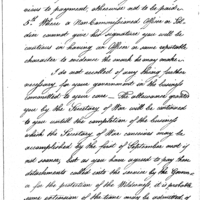 vious to payment, otherwise not to be paid.
5th Where a Non Commissioned Officer or Sol-
dier cannot give his signature you will be
cautious in having an Officer or some reputable
character to evidence the mark he may make.
I do not recollect of any thing further
necessary for your government in the business
committed to your care — The allowance granted
you by the Secretary of War will be continued
to you until the completion of the business
which the Secretary of War conceives may be
accomplished by the first of September next if
not sooner, but as you have agreed to pay those
detachments called into the service by the Govern-
or for the protection of the Westward, it is probable
some extension of the time may be admitted